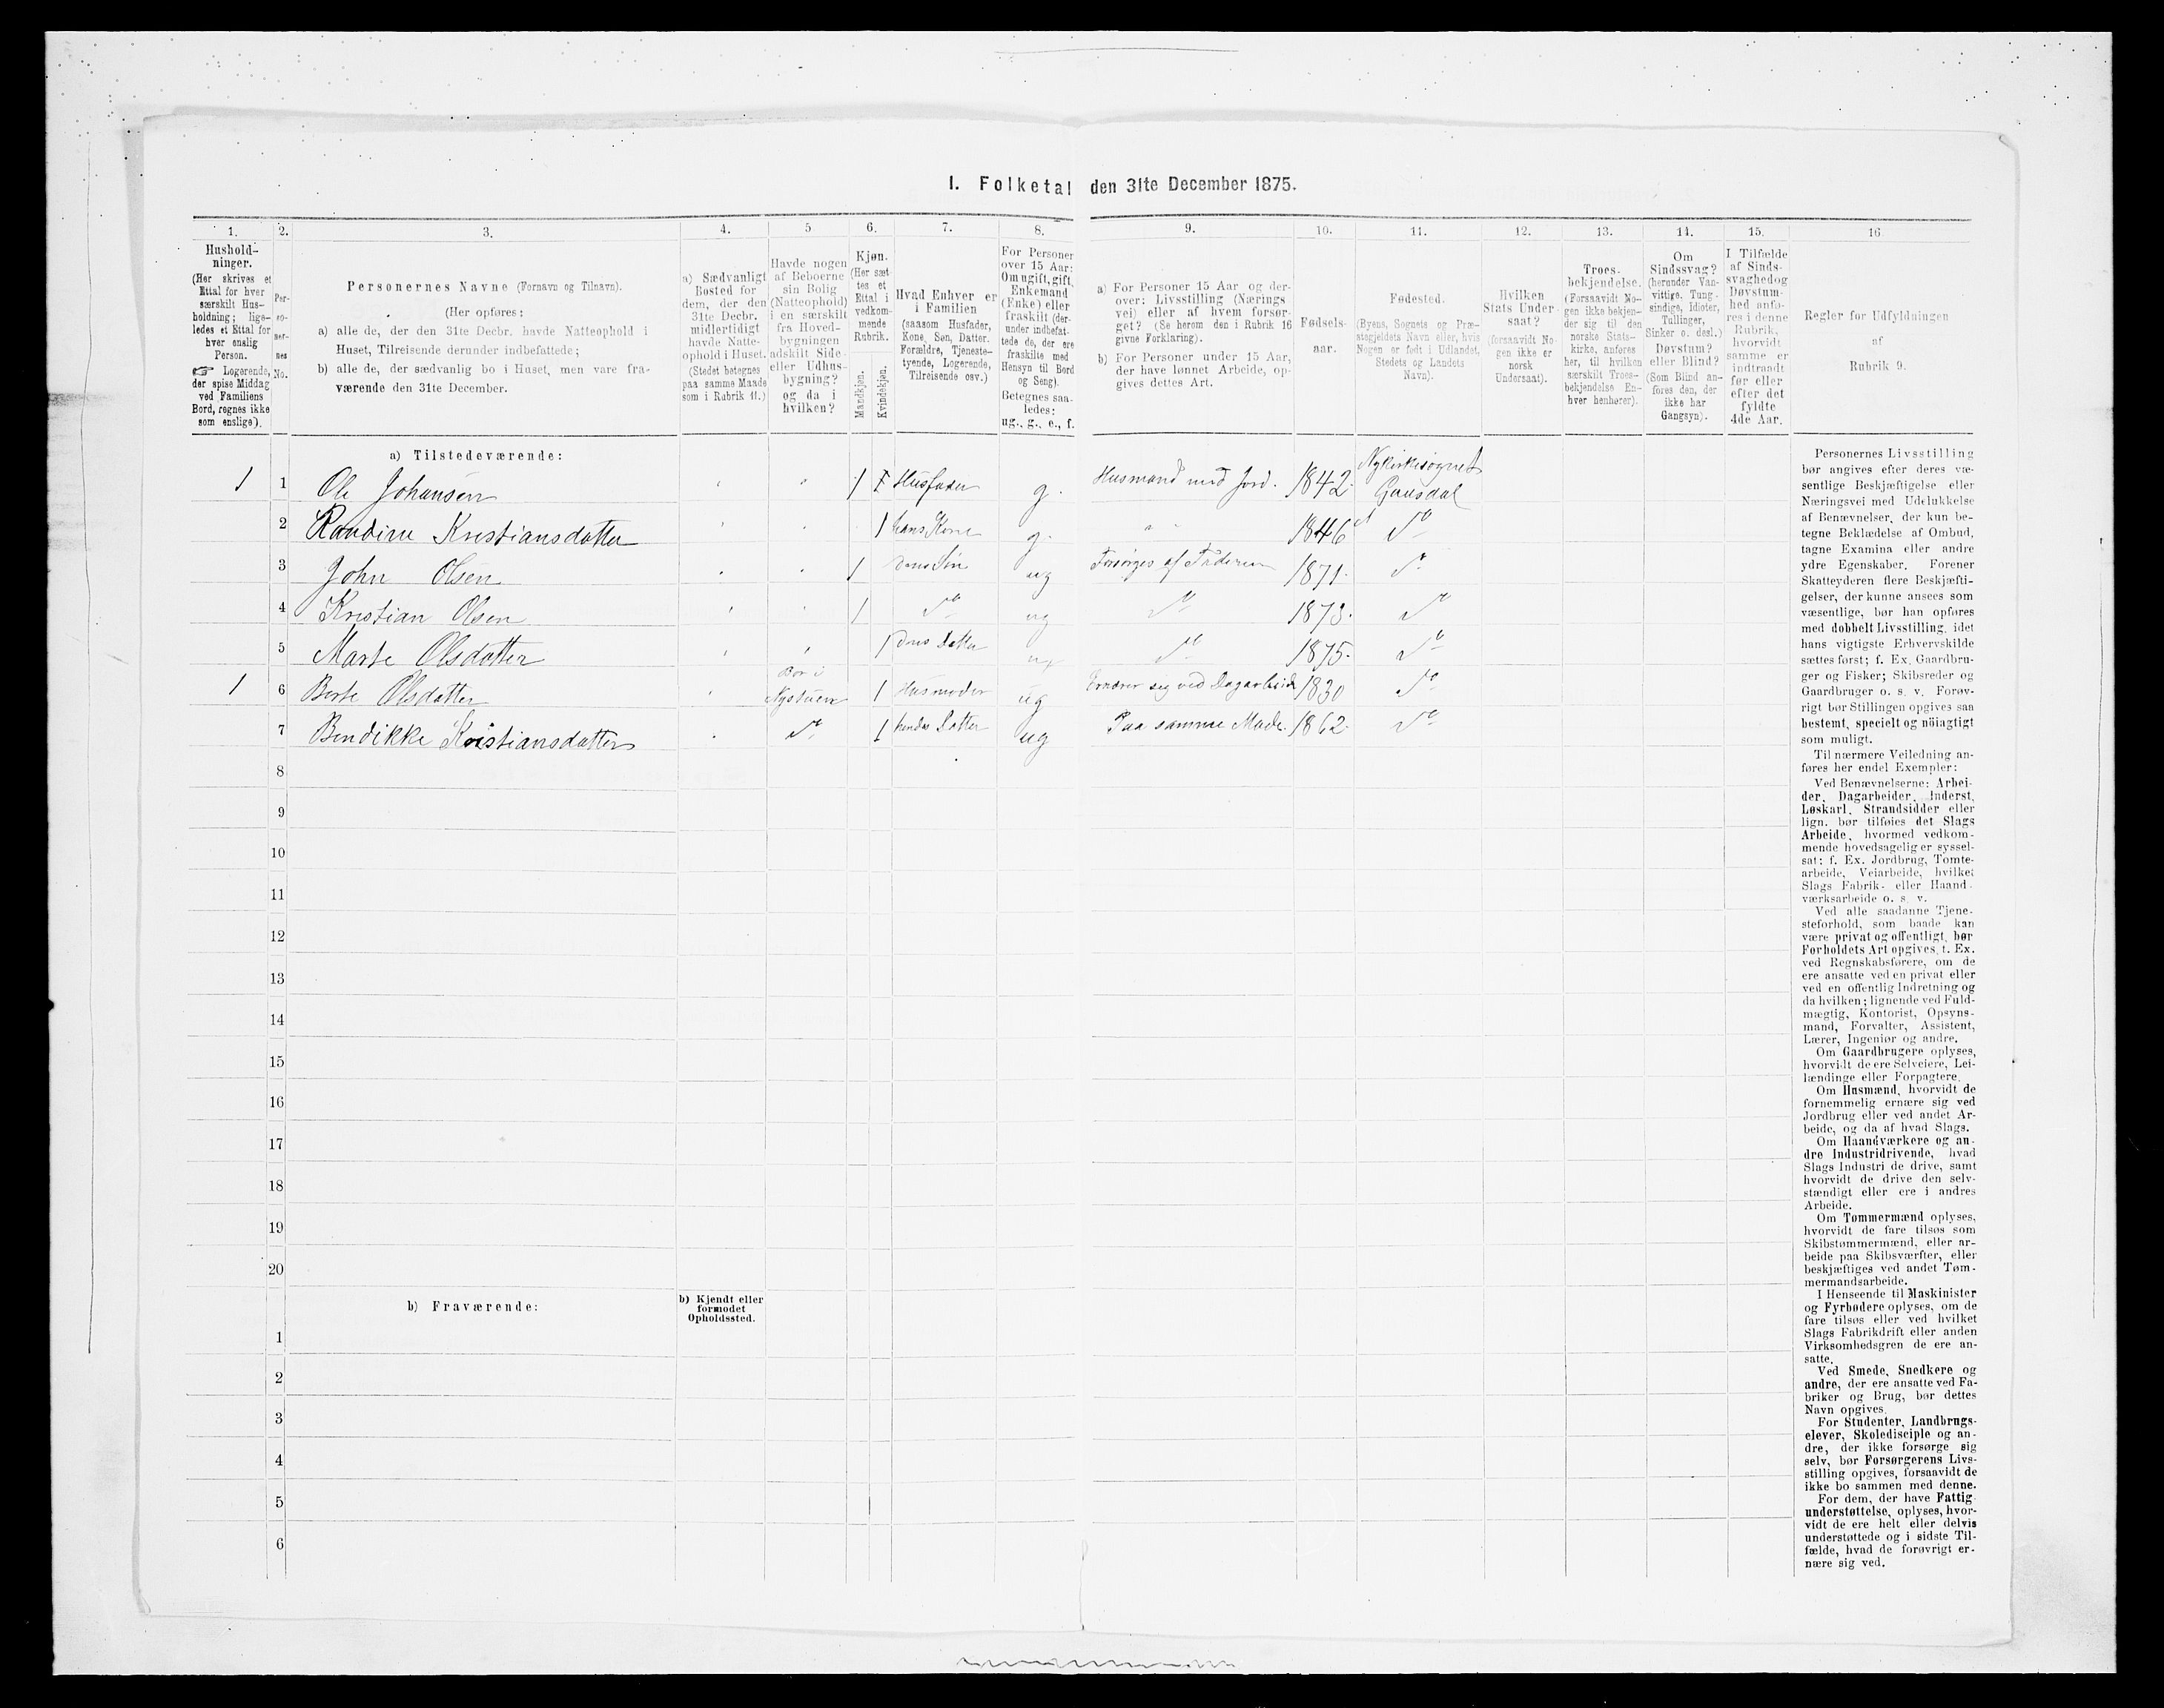 I. Folketal den 31te December 1875.
1.
Hushold-
ninger.
(Her skrives et
Ettal for hver
særskilt Hus-
holdning; lige-
ledes et Ettal for
hver enslig
Person.
☞ Logerende,
der spise Middag
ved Familiens
Bord, regnes ikke
som enslige).
2.
Per-
so-
ner-
nes
No.
3.
Personernes Navne (Fornavn og Tilnavn).
(Her opføres:
a) alle de, der den 31te Decbr. havde Natteophold i
Huset, Tilreisende derunder indbefattede;
b) alle de, der sædvanlig bo i Huset, men vare fra-
værende den 31te December.
4.
a) Sædvanligt
Bosted for
dem, der den
31te Decbr.
midlertidigt
havde Natte-
ophold i Huset.
(Stedet betegnes
paa samme Maade
som i Rubrik 11.)
5
Havde nogen
af Beboerne
sin Bolig
(Natteophold)
i en særskilt
fra Hoved-
bygningen
adskilt Side-
eller Udhus-
bygning?
og da i
hvilken?
6.
Kjøn.
(Her sæt-
tes et
Ettal i
vedkom-
mende
Rubrik.
Mandkjøn.
Kvindekjøn.
7.
Hvad Enhver er
i Familien
(saasom Husfader,
Kone, Søn, Datter,
Forældre, Tjeneste-
tyende, Logerende,
Tilreisende osv.)
8.
For Personer
over 15 Aar:
Om ugift, gift,
Enkemand
(Enke) eller
fraskilt (der-
under indbefat-
tede de, der ere
fraskilte med
Hensyn til Bord
og Seng).
Betegnes saa-
ledes:
ug., g., e., f.
9.
a) For Personer 15 Aar og der-
over: Livsstilling (Nærings
vei) eller af hvem forsør-
get? (Se herom den i Rubrik 16
givne Forklaring).
b) For Personer under 15 Aar,
der have lønnet Arbeide, op-
gives dettes Art.
10.
Fødsels-
aar.
11.
Fødested.
(Byens, Sognets og Præ-
stegjeldets Navn eller, hvis
Nogen er født i Udlandet,
Stedets og Landets
Navn).
12.
Hvilken
Stats Under
saat?
(forsaavidt No-
gen ikke er
norsk
Undersaat).
13.
Troes-
bekjendelse.
(Forsaavidt No-
gen ikke bekjen-
der sig til den
norske Stats-
kirke, anføres
her, til hvilken
særskilt Troes-
bekjendelse En-
hver henhører).
14.
Om
Sindssvag?
(herunder Van-
vittige, Tung-
sindige, Idioter,
Tullinger,
Sinker o. desl.)
Døvstum?
eller Blind?
(Som Blind an-
føres den, der
ikke har
Gangsyn).
15.
I Tilfælde
af Sinds-
svaghed og
Døvstum-
hed anfø-
res i denne
Rubrik,
hvorvidt
samme er
indtraadt
før eller
efter det
fyldte
4de Aar.
16
Regler for Udfyldningen
af
Rubrik 9.
a) Tilstedeværende:
1 1 Ole Johansen " " 1 Husfader g. Husmand med Jord. 1842. Nykirkesognet Gausdal
2 Randine Kristiansdatter " " 1 hans Kone g. " " 1846 do
3 John Olsen " " 1 deres Søn ug Forsørges af Faderen 1871. do
4 Kristian Olsen " " 1 do ug do 1873. do
5 Marte Olsdatter " " 1 deres Datter ug do 1875. do
1 6 Berte Olsdatter " Bor i Nystuen 1 Husmoder ug Ernærer sig ved Dagarbeide 1830 do
7 Bendikke Kristiansdatter " do 1 hendes Datter ug Paa samme Maade. 1862. do
8
9
10
11
12
13
14
15
16
17
18
19
20
b) Fraværende:
b) Kjendt eller
formodet
Opholdssted.
1
2
3
4
5
6
Personernes Livsstilling
bør angives efter deres væ-
sentlige Beskjæftigelse eller
Næringsvei med Udelukkelse
af Benævnelser, der kun be-
tegne Beklædelse af Ombud,
tagne Examina eller andre
ydre Egenskaber. Forener
Skatteyderen flere Beskjæfti-
gelser, der kunne ansees som
væsentlige, bør han opføres
med dobbelt Livsstilling, idet
hans vigtigste Erhvervskilde
sættes først; f. Ex. Gaardbru-
ger og Fisker; Skibsreder og
Gaardbruger o. s. v. Forøv-
rigt bør Stillingen opgives saa
bestemt, specielt og nöiagtigt
som muligt.
Til nærmere Veiledning an-
føres her endel Exempler:
Ved Benævnelserne: Arbei-
der, Dagarbeider, Inderst,
Løskarl, Strandsidder eller
lign. bør tilføies det Slags
Arbeide, hvormed vedkom-
mende hovedsagelig er syssel-
sat; f. Ex. Jordbrug, Tomte-
arbeide, Veiarbeide, hvilket
Slags Fabrik- eller Haand-
værksarbeide o. s. v.
Ved alle saadanne Tjene-
steforhold, som baade kan
være privat og offentligt, bør
Forholdets Art opgives, f. Ex.
ved Regnskabsførere, om de
ere ansatte ved en privat eller
ved en offentlig Indretning og
da hvilken; lignende ved Fuld-
mægtig, Kontorist, Opsyns-
mand, Forvalter, Assistent,
Lærer, Ingeniør og andre.
Om Gaardbrugere oplyses,
hvorvidt de ere Selveiere, Lei-
lændinge eller Forpagtere.
Om Husmænd, hvorvidt de
fornemmelig ernære sig ved
Jordbrug eller ved andet Ar-
beide, og da af hvad Slags.
Om Haandværkere og an-
dre Industridrivende, hvad
Slags Industri de drive, samt
hvorvidt de drive den selv-
stændigt eller ere i andres
Arbeide.
Om Tømmermænd oplyses,
hvorvidt de fare tilsøs som
Skibstømmermænd, eller ar-
beide paa Skibsværfter, eller
beskjæftiges ved andet Tøm-
mermandsarbeide.
I Henseende til Maskinister
og Fyrbødere oplyses, om de
fare tilsøs eller ved hvilket
Slags Fabrikdrift eller anden
Virksomhedsgren de ere an-
satte.
Ved Smede, Snedkere og
andre, der ere ansatte ved Fa-
briker og Brug, bør dettes
Navn opgives.
For Studenter, Landbrugs-
elever, Skoledisciple og an-
dre, der ikke forsørge sig
selv, bør Forsørgerens Livs-
stilling opgives, forsaavidt de
ikke bo sammen med denne.
For dem, der have Fattig-
understøttelse, oplyses, hvor-
vidt de ere helt eller delvis
understøttede og i sidste Til-
fælde, hvad de forøvrigt er-
nære sig ved.